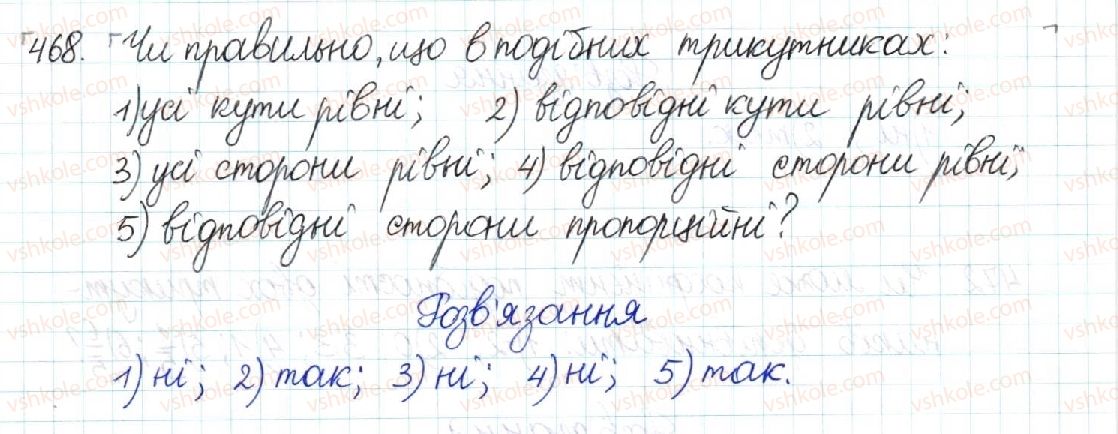 468. Чи правильно, що в подібних трикутниках:
1) усі кути рівні; 2) відповідні кути рівні;
3) усі сторони рівні; 4) відповідні сторони рівні;
5) відповідні сторони пропорційні?
Розв'язання
1) ні; 2) так; 3) ні; 4) ні; 5) так.